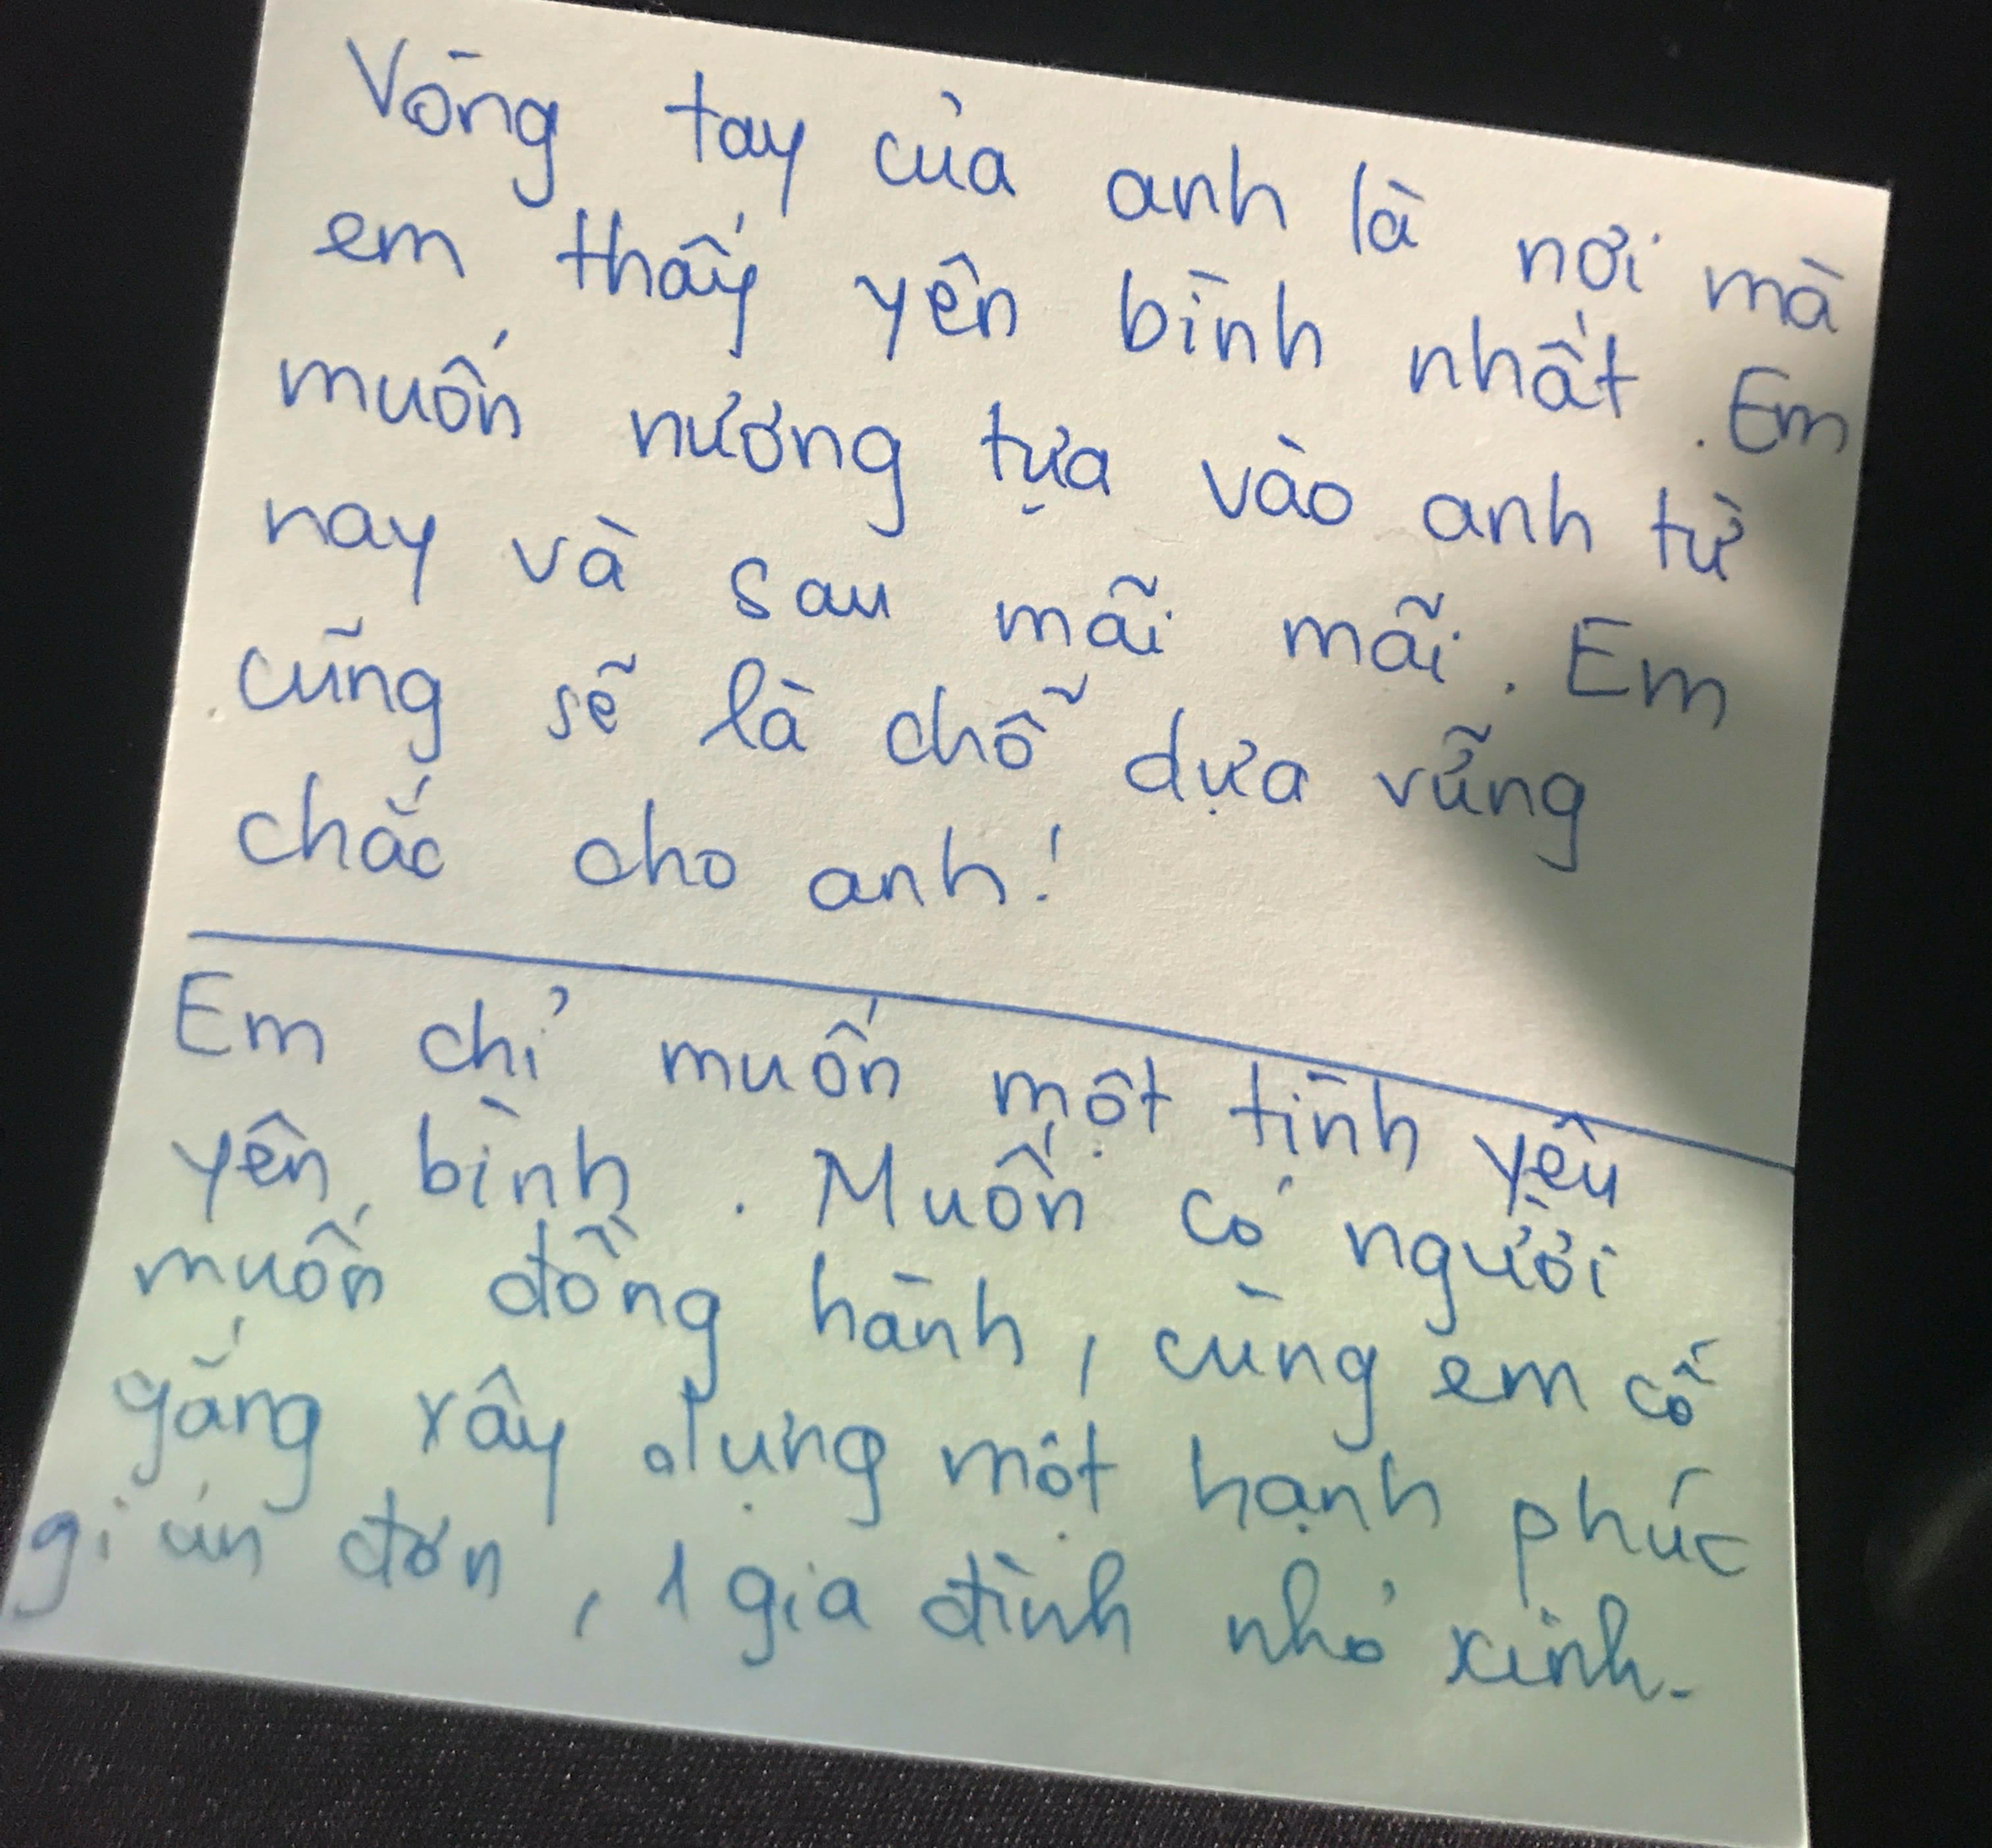 Vòng tay của anh là nơi mà
em thấy yên bình nhất. Em
muốn nương tựa vào anh từ
nay và sau mãi mãi. Em
cũng sẽ là chỗ dựa vững
chắc cho anh!
Em chỉ muốn một tình yêu
yên bình. Muốn có người
muốn đồng hành, cùng em cố
gắng xây dựng một hạnh phúc
giản đơn, 1 gia đình nhỏ xinh.